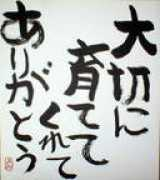 大切に
育てて
くれて
ありがとう